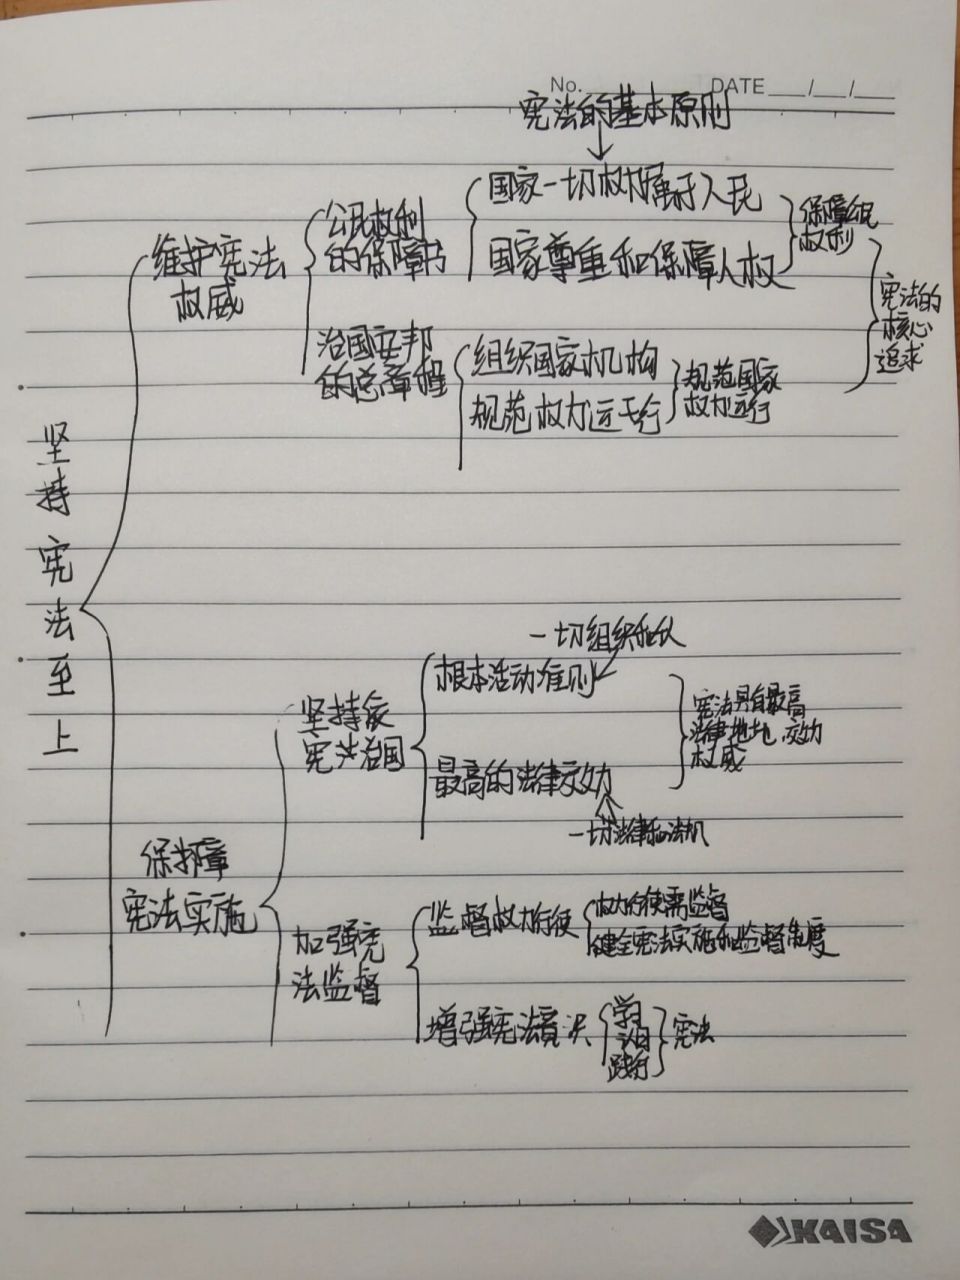 No.
DATE / /
宪法的基本原则
国家一切权力属于人民
公民权利
的保障书
保障公民
权利
维护宪法
权威
国家尊重和保障人权
宪法的
核心
追求
治国安邦
的总章程
组织国家机构
规范权力运行
规范国家
权力运行
坚持宪法至上
一切组织和个人
根本活动准则
坚持依
宪法治国
宪法具有最高
法律地位、效力
权威
最高的法律效力
一切法律和法规
保障
宪法实施
监督权力行使
权力行使需监督
健全宪法实施和监督制度
加强宪
法监督
增强宪法意识
学习
认同
践行
宪法
KAISA